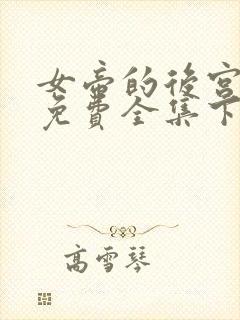 女帝的後宮
免費全集下
高雪琴